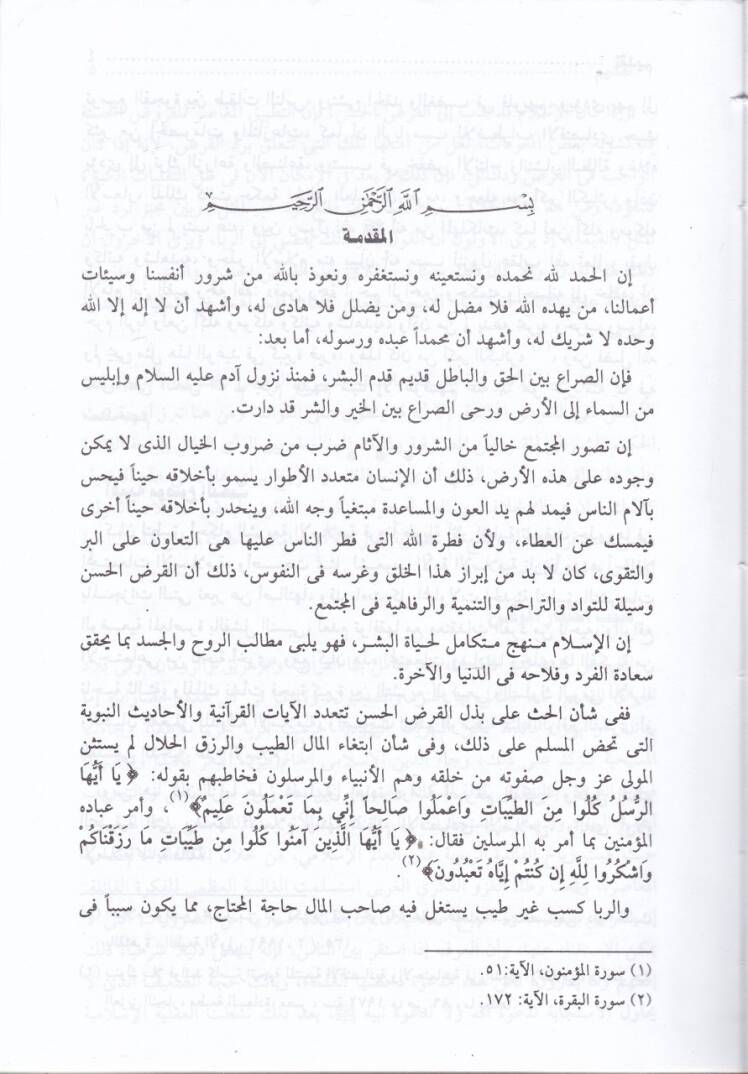 بِسْمِ اللَّهِ الرَّحْمَٰنِ الرَّحِيمِ
المقدمة
إن الحمد لله نحمده ونستعينه ونستغفره ونعوذ بالله من شرور أنفسنا وسيئات
أعمالنا، من يهده الله فلا مضل له، ومن يضلل فلا هادى له، وأشهد أن لا إله إلا الله
وحده لا شريك له، وأشهد أن محمداً عبده ورسوله، أما بعد:
فإن الصراع بين الحق والباطل قديم قدم البشر، فمنذ نزول آدم عليه السلام وإبليس
من السماء إلى الأرض ورحى الصراع بين الخير والشر قد دارت.
إن تصور المجتمع خالياً من الشرور والآثام ضرب من ضروب الخيال الذى لا يمكن
وجوده على هذه الأرض، ذلك أن الإنسان متعدد الأطوار يسمو بأخلاقه حيناً فيحس
بآلام الناس فيمد لهم يد العون والمساعدة مبتغياً وجه الله، وينحدر بأخلاقه حيناً أخرى
فيمسك عن العطاء، ولأن فطرة الله التى فطر الناس عليها هى التعاون على البر
والتقوى، كان لا بد من إبراز هذا الخلق وغرسه فى النفوس، ذلك أن القرض الحسن
وسيلة للتواد والتراحم والتنمية والرفاهية فى المجتمع.
إن الإسلام منهج متكامل لحياة البشر، فهو يلبى مطالب الروح والجسد بما يحقق
سعادة الفرد وفلاحه فى الدنيا والآخرة.
ففى شأن الحث على بذل القرض الحسن تتعدد الآيات القرآنية والأحاديث النبوية
التى تحض المسلم على ذلك، وفى شأن ابتغاء المال الطيب والرزق الحلال لم يستثن
المولى عز وجل صفوته من خلقه وهم الأنبياء والمرسلون فخاطبهم بقوله: ﴿يَا أَيُّهَا
الرُّسُلُ كُلُوا مِنَ الطَّيِّبَاتِ وَاعْمَلُوا صَالِحاً إِنِّي بِمَا تَعْمَلُونَ عَلِيمٌ﴾(١)، وأمر عباده
المؤمنين بما أمر به المرسلين فقال: ﴿يَا أَيُّهَا الَّذِينَ آمَنُوا كُلُوا مِن طَيِّبَاتِ مَا رَزَقْنَاكُمْ
وَاشْكُرُوا لِلَّهِ إِن كُنتُمْ إِيَّاهُ تَعْبُدُونَ﴾(٢).
والربا كسب غير طيب يستغل فيه صاحب المال حاجة المحتاج، مما يكون سبباً فى
(١) سورة المؤمنون، الآية:٥١.
(٢) سورة البقرة، الآية: ١٧٢.